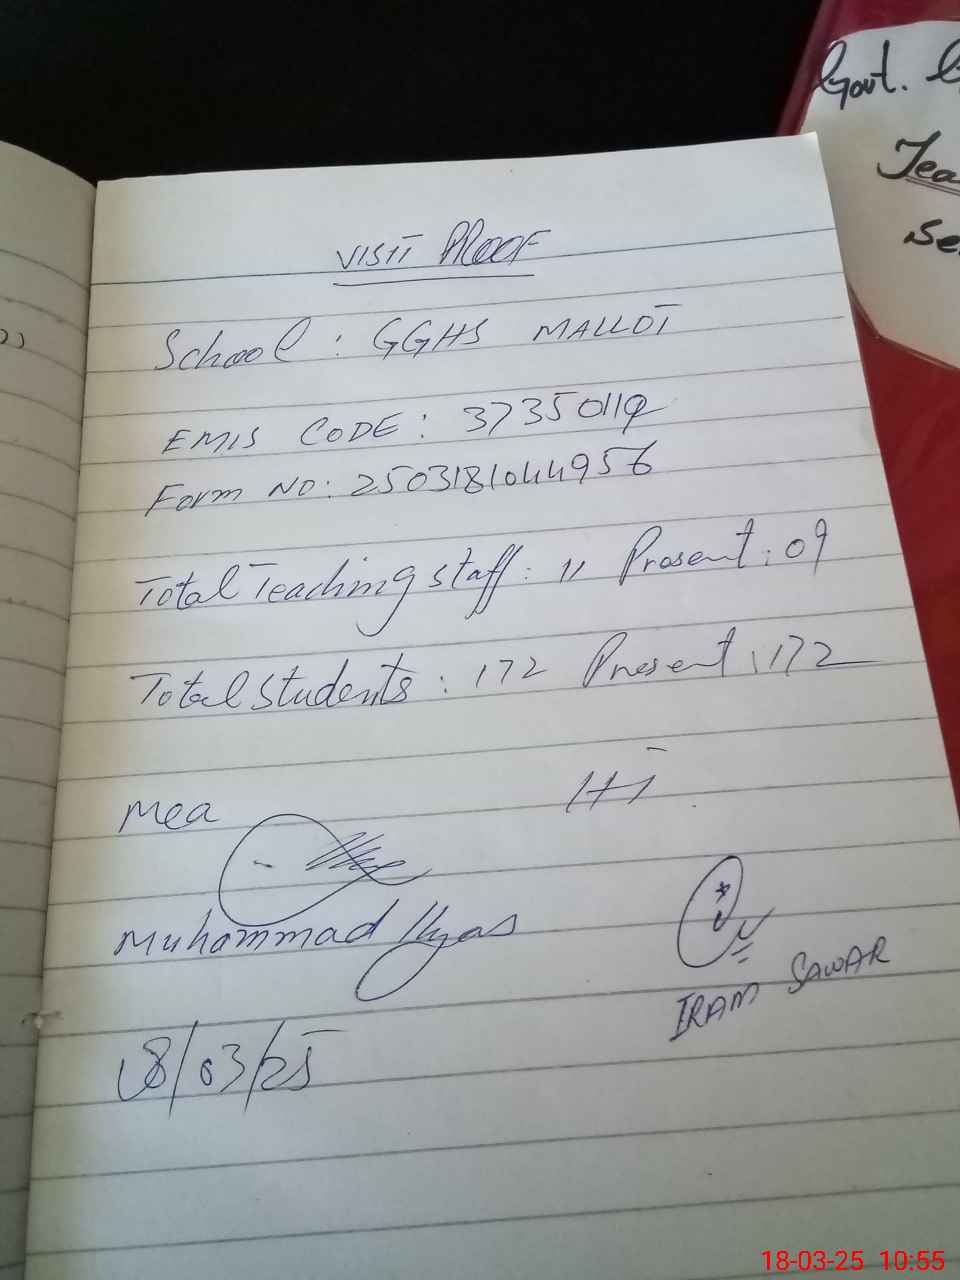 Govt. G
Tea
Se
VISIT PROOF
School : GGHS MALLOT
EMIS CODE : 37350119
Form NO: 2503181044956
Total Teaching staff : 11 Present : 09
Total Students : 172 Present : 172
Mea
HT
Muhammad Ilyas
IRAM SAWAR
18/03/25
18-03-25 10:55